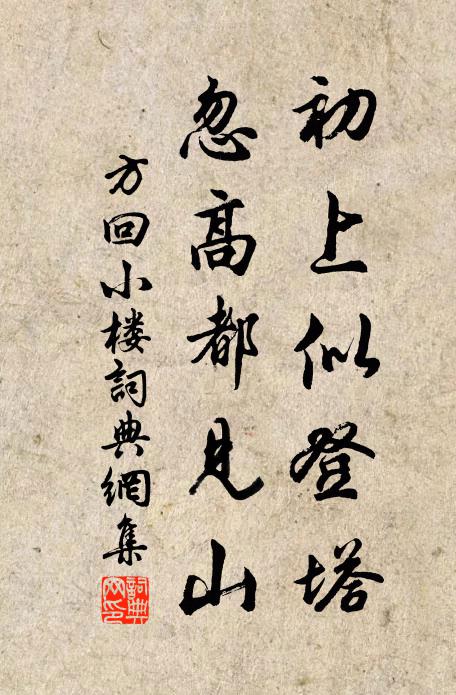 初上似登塔
忽高都見山
方回小楼詞典網集
詞典網印